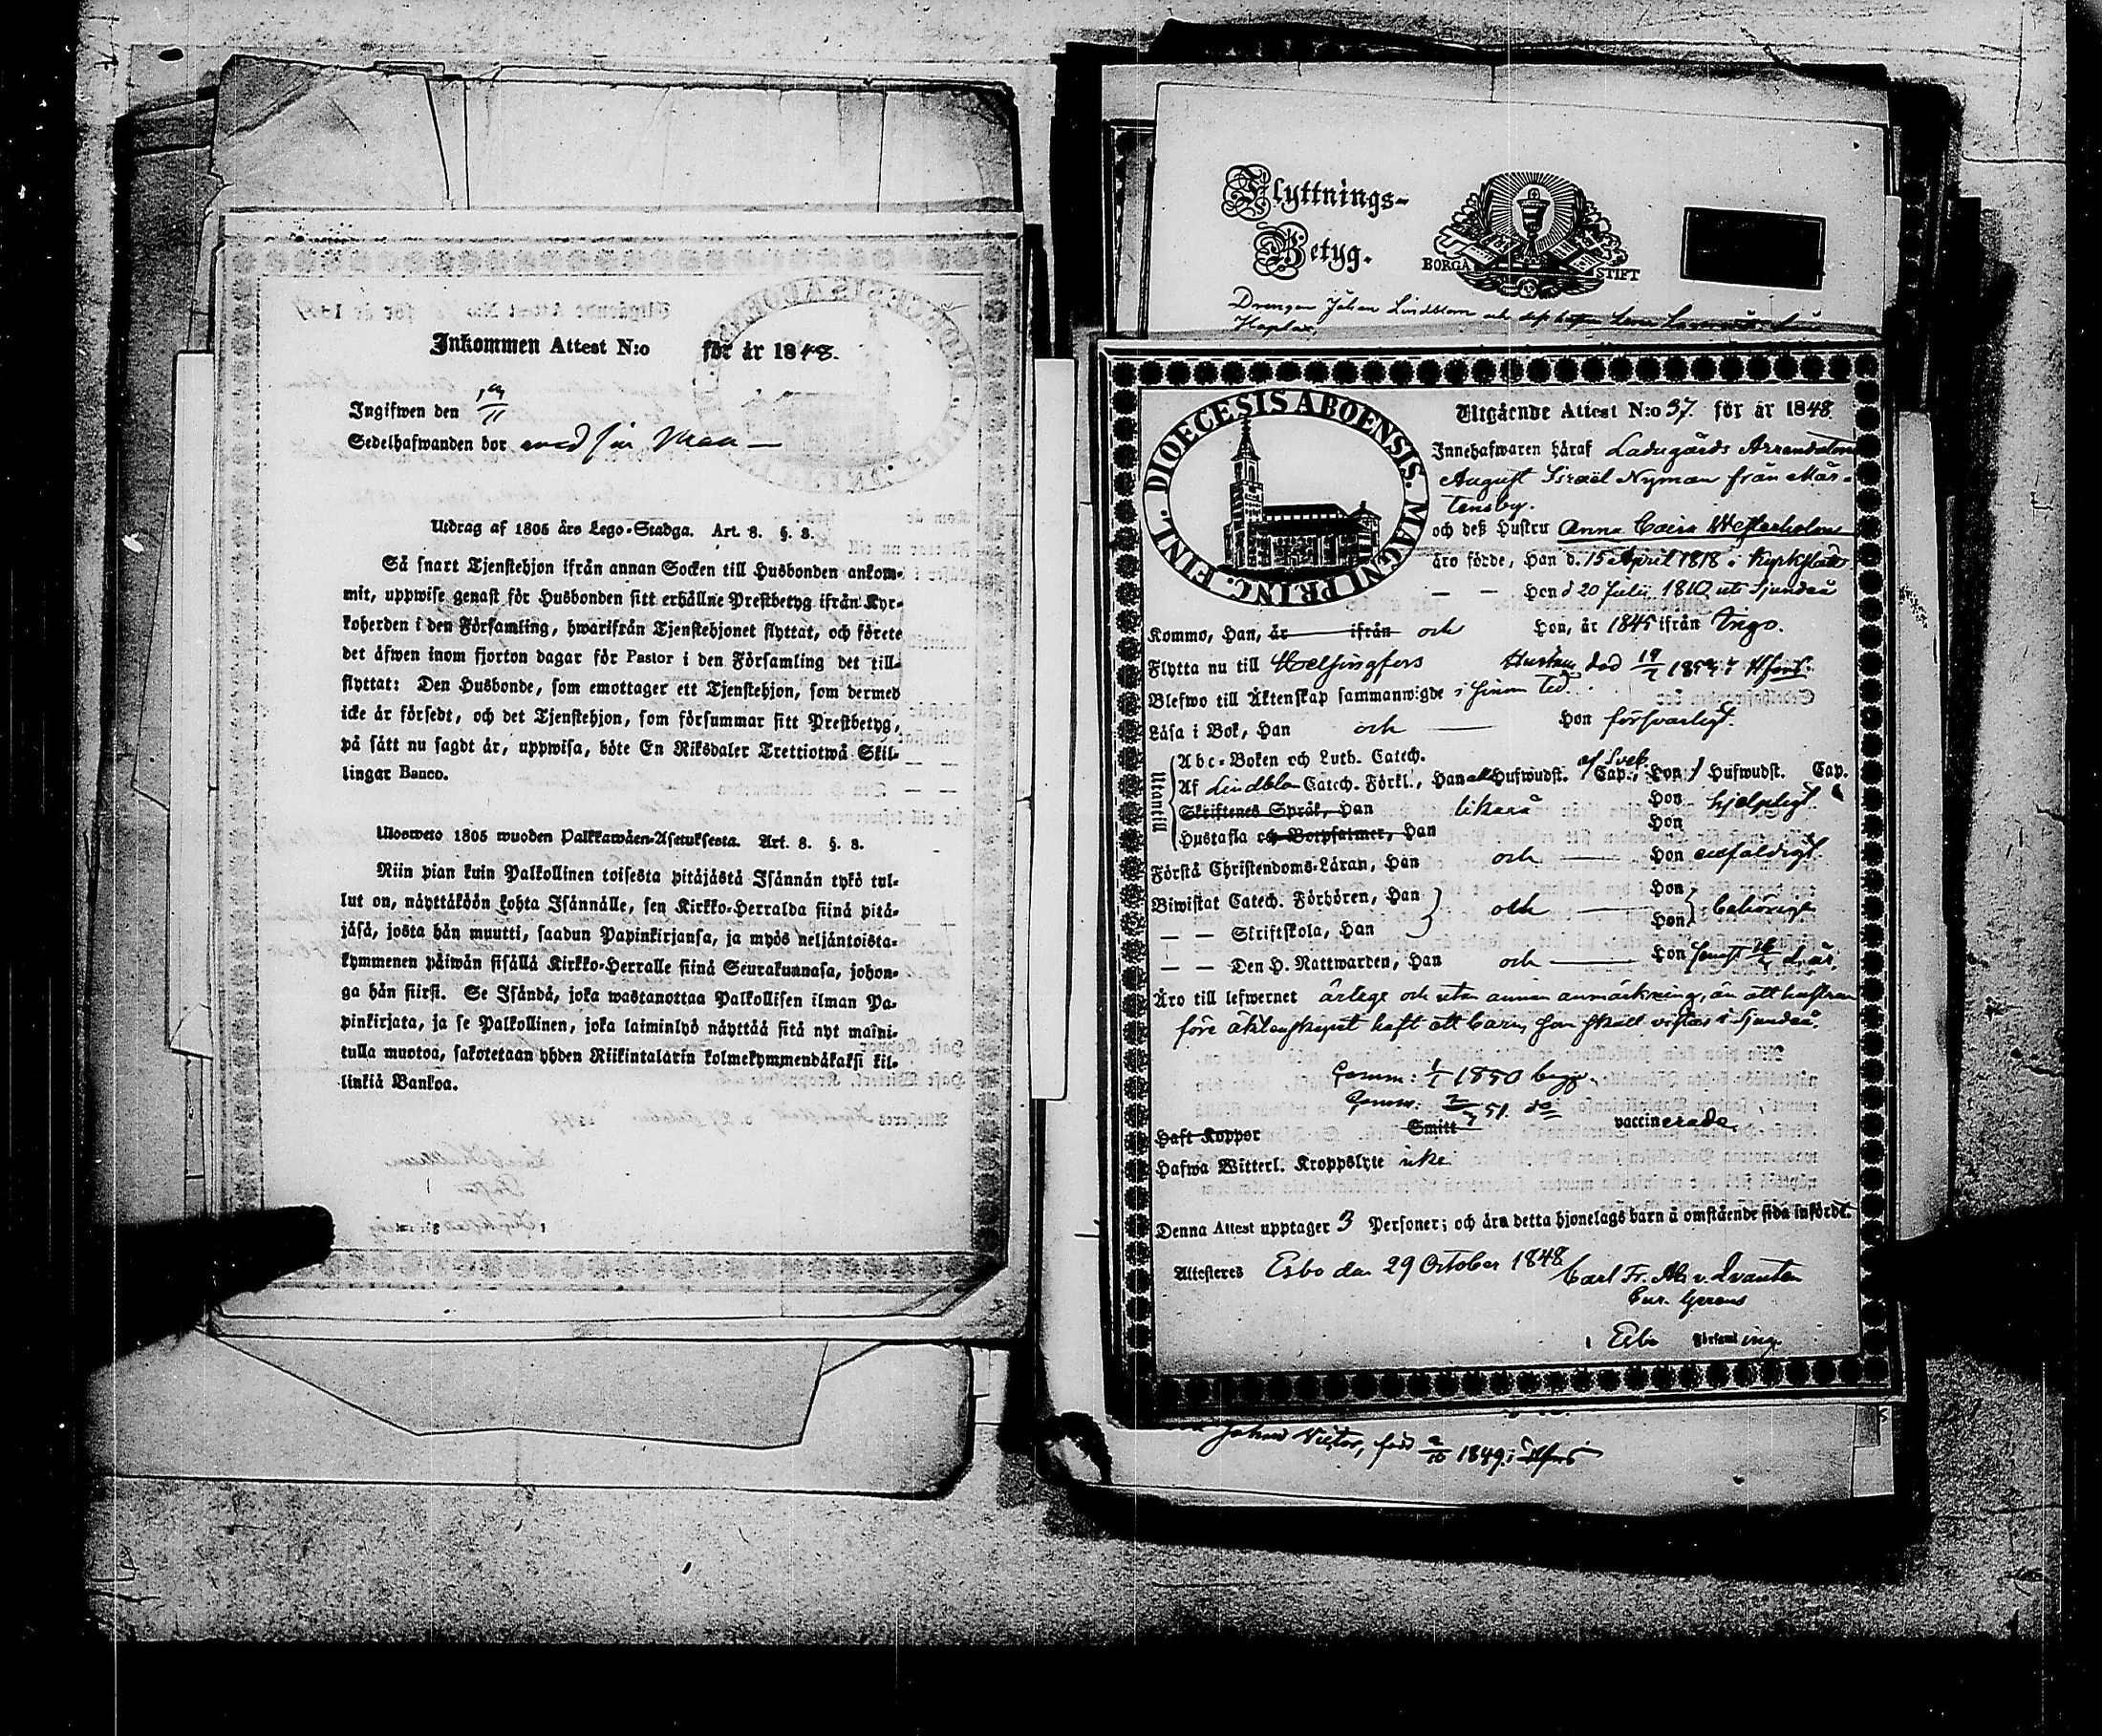 Inkommen Attest N:o för år 1848.
Ingifwen den
Sedelhafwanden bor med sin Man —
Utdrag af 1805 års Lego-Stadga. Art. 8. §. 8.
Så snart Tjenstehjon ifrån annan Socken till Husbonden ankom-
mit, uppwise genast för Husbonden sitt erhållne Prestbetyg ifrån Kyr-
koherden i den Församling, hwarifrån Tjenstehjonet flyttat, och förete
det äfwen inom fjorton dagar för Pastor i den Församling det till-
flyttat: Den Husbonde, som emottager ett Tjenstehjon, som dermed
icke är försedt, och det Tjenstehjon, som försummar sitt Prestbetyg,
på sätt nu sagdt är, uppwisa, böte En Riksdaler Trettiotwå Skil-
lingar Banco.
Ulosweto 1805 wuoden Palkkawäen-Asetuksesta. Art. 8. §. 8.
Niin pian kuin Palkollinen toisesta pitäjästä Isännän tykö tul-
lut on, näyttäköön kohta Isännälle, sen Kirkko-Herralda siinä pitä-
jäsä, josta hän muutti, saadun Papinkirjansa, ja myös neljäntoista-
kymmenen päiwän sisällä Kirkko-Herralle siinä Seurakunnasa, johon-
ga hän siirsi. Se Isändä, joka wastanottaa Palkollisen ilman Pa-
pinkirjata, ja se Palkollinen, joka laiminlyö näyttää sitä nyt maini-
tulla muotoa, sakotetaan yhden Riikintalarin kolmekymmendäkaksi kil-
linkiä Bankoa.
Flyttnings-
Betyg.
BORGÅ STIFT
Drengen Johan Lindblom och dess hustru Lena
Hoplax
DIOECESIS ABOENSIS. MAGNI PRINC. FINL.
Utgående Attest N:o 37. för år 1848.
Innehafwaren häraf Ladugårds Arrendatorn
August Israël Nyman från Mår-
tensby.
och deß Hustru Anna Caisa Westerholm
äro födde, Han d. 15 April 1818 i Kyrkslätt
— — Hon d 20 Julii 1810 uti Sjundeå
Kommo, Han, år ifrån och Hon, år 1845 ifrån Ingo.
Flytta nu till Helsingfors Hustrun död
Blefwo till Äktenskap sammanwigde i sinom tid.
Läsa i Bok, Han och — Hon försvarligt.
Utantill
Abc-Boken och Luth. Catech.
Af Lindblom Catech. Förkl., Han all Hufwudst. Cap., af Sveb. Hon 1 Hufwudst. Cap.
Skriftenes Språk, Han likaså Hon hjelpligt.
Hustafla och Botpsalmer, Han Hon
Förstå Christendoms-Läran, Han och — Hon enfaldigt.
Biwistat Catech. Förhören, Han och — Hon behörigt
— — Skriftskola, Han Hon
— — Den H. Nattwarden, Han och — Hon senast d. år.
Äro till lefwernet ärlige och utan annan anmärkning, än att hustrun
före äktenskapet haft ett barn, som skall vistas i Sjundeå.
Comm: 1/1 1850 begge.
Comm: 51. do
Haft Koppor Smitt vaccinerade.
Hafwa Witterl. Kroppslyte icke
Denna Attest upptager 3 Personer; och äro detta hjonelags barn å omstående sida införde.
Attesteres Esbo den 29 October 1848
Carl Fr. Al. v. Qvanten
Cur. Gerens
i Esbo Församling.
Johan Victor, född 2/10 1849 i Hfors